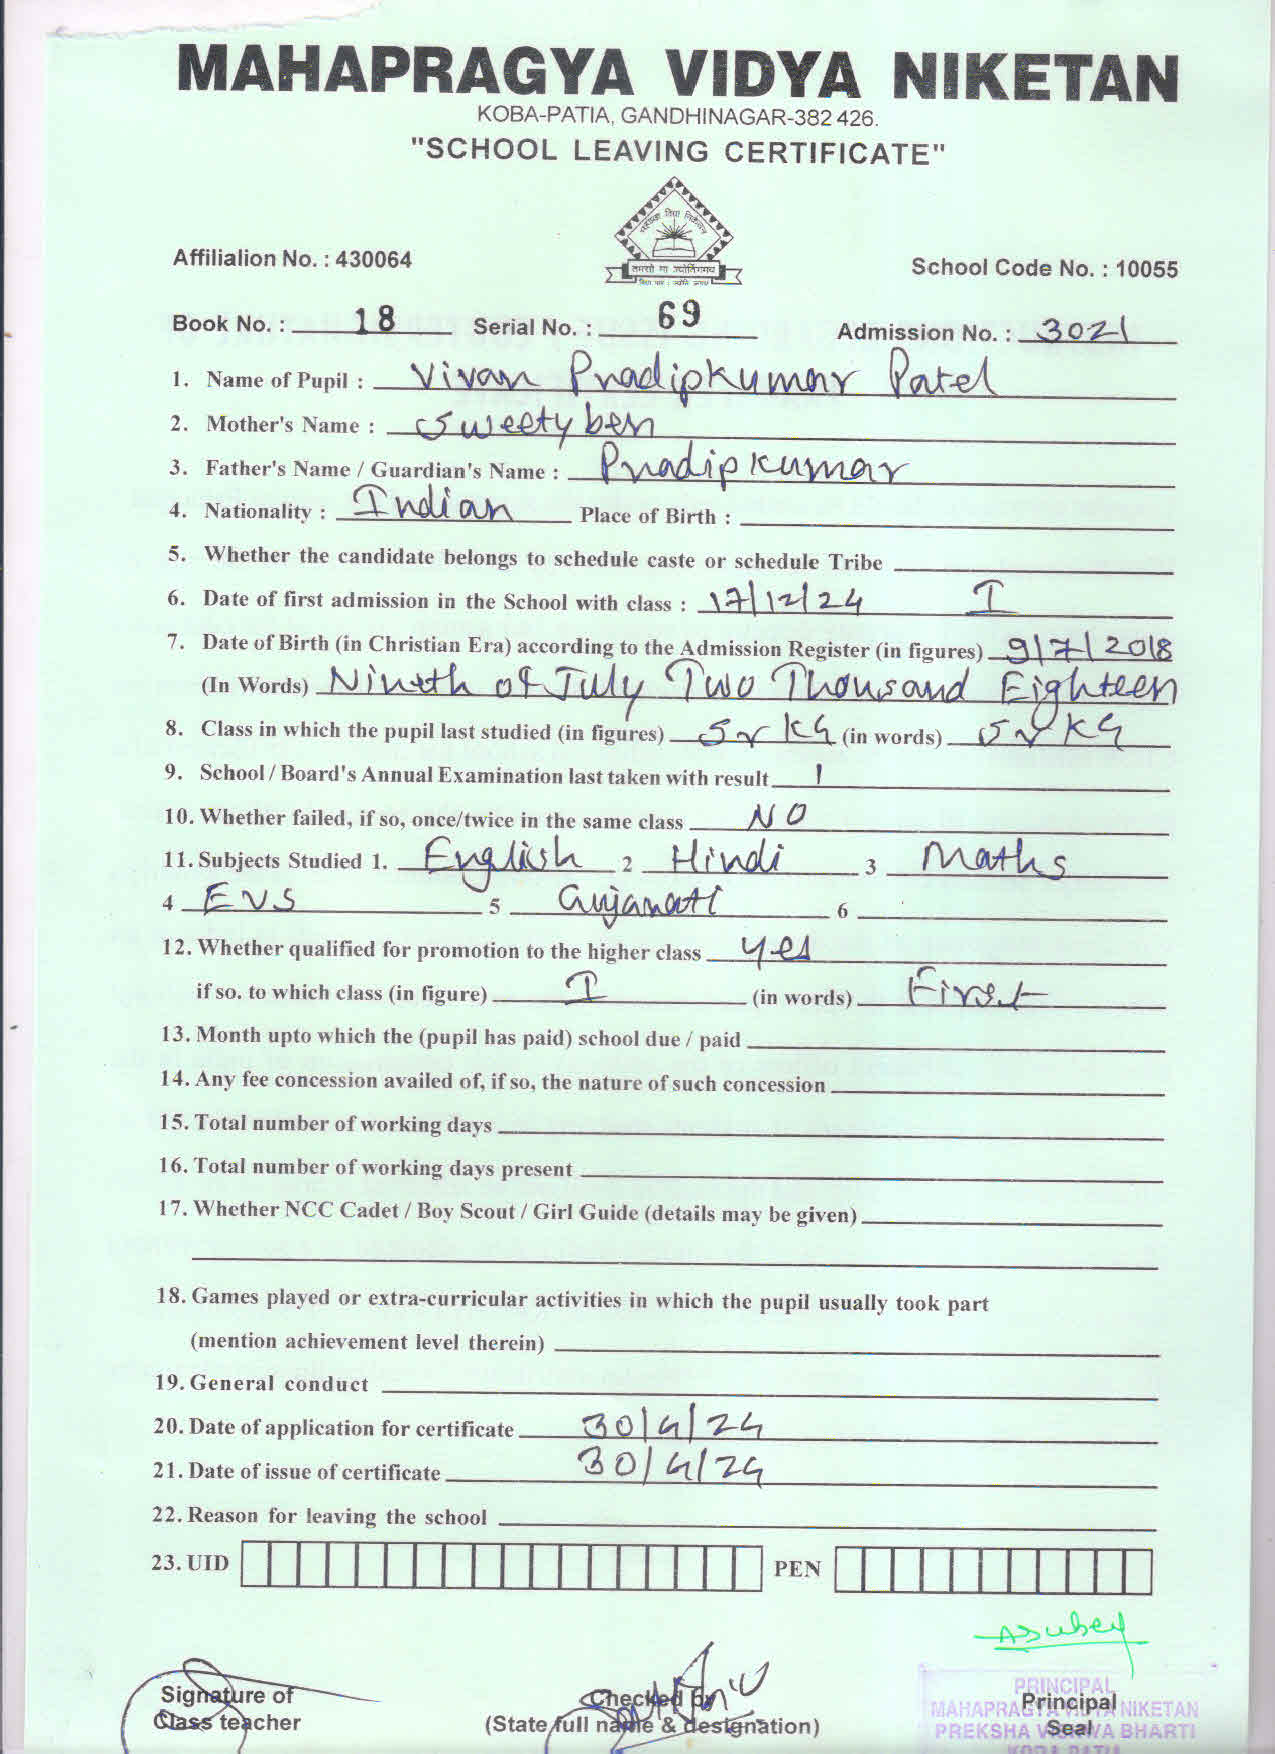 MAHAPRAGYA VIDYA NIKETAN
KOBA-PATIA, GANDHINAGAR-382 426.
"SCHOOL LEAVING CERTIFICATE"
महाप्रज्ञ विद्या निकेतन
तमसो मा ज्योतिर्गमय
Affilialion No. : 430064
School Code No. : 10055
Book No. : 18 Serial No. : 69 Admission No. : 3021
1. Name of Pupil : Vivan Pradipkumar Patel
2. Mother's Name : Sweetyben
3. Father's Name / Guardian's Name : Pradipkumar
4. Nationality : Indian Place of Birth :
5. Whether the candidate belongs to schedule caste or schedule Tribe
6. Date of first admission in the School with class : 17/12/24 I
7. Date of Birth (in Christian Era) according to the Admission Register (in figures) 9/7/2018
(In Words) Nineth of July Two Thousand Eighteen
8. Class in which the pupil last studied (in figures) Sr KG (in words) Sr KG
9. School / Board's Annual Examination last taken with result 1
10. Whether failed, if so, once/twice in the same class NO
11. Subjects Studied 1. English 2 Hindi 3 Maths
4 EVS 5 Gujarati 6
12. Whether qualified for promotion to the higher class yes
if so. to which class (in figure) I (in words) First
13. Month upto which the (pupil has paid) school due / paid
14. Any fee concession availed of, if so, the nature of such concession
15. Total number of working days
16. Total number of working days present
17. Whether NCC Cadet / Boy Scout / Girl Guide (details may be given)
18. Games played or extra-curricular activities in which the pupil usually took part
(mention achievement level therein)
19. General conduct
20. Date of application for certificate 30/4/24
21. Date of issue of certificate 30/4/24
22. Reason for leaving the school
23. UID PEN
Signature of
Class teacher
Checked by
(State full name & designation)
Principal
Seal
PRINCIPAL
MAHAPRAGYA VIDYA NIKETAN
PREKSHA VISHWA BHARTI
KOBA PATIA